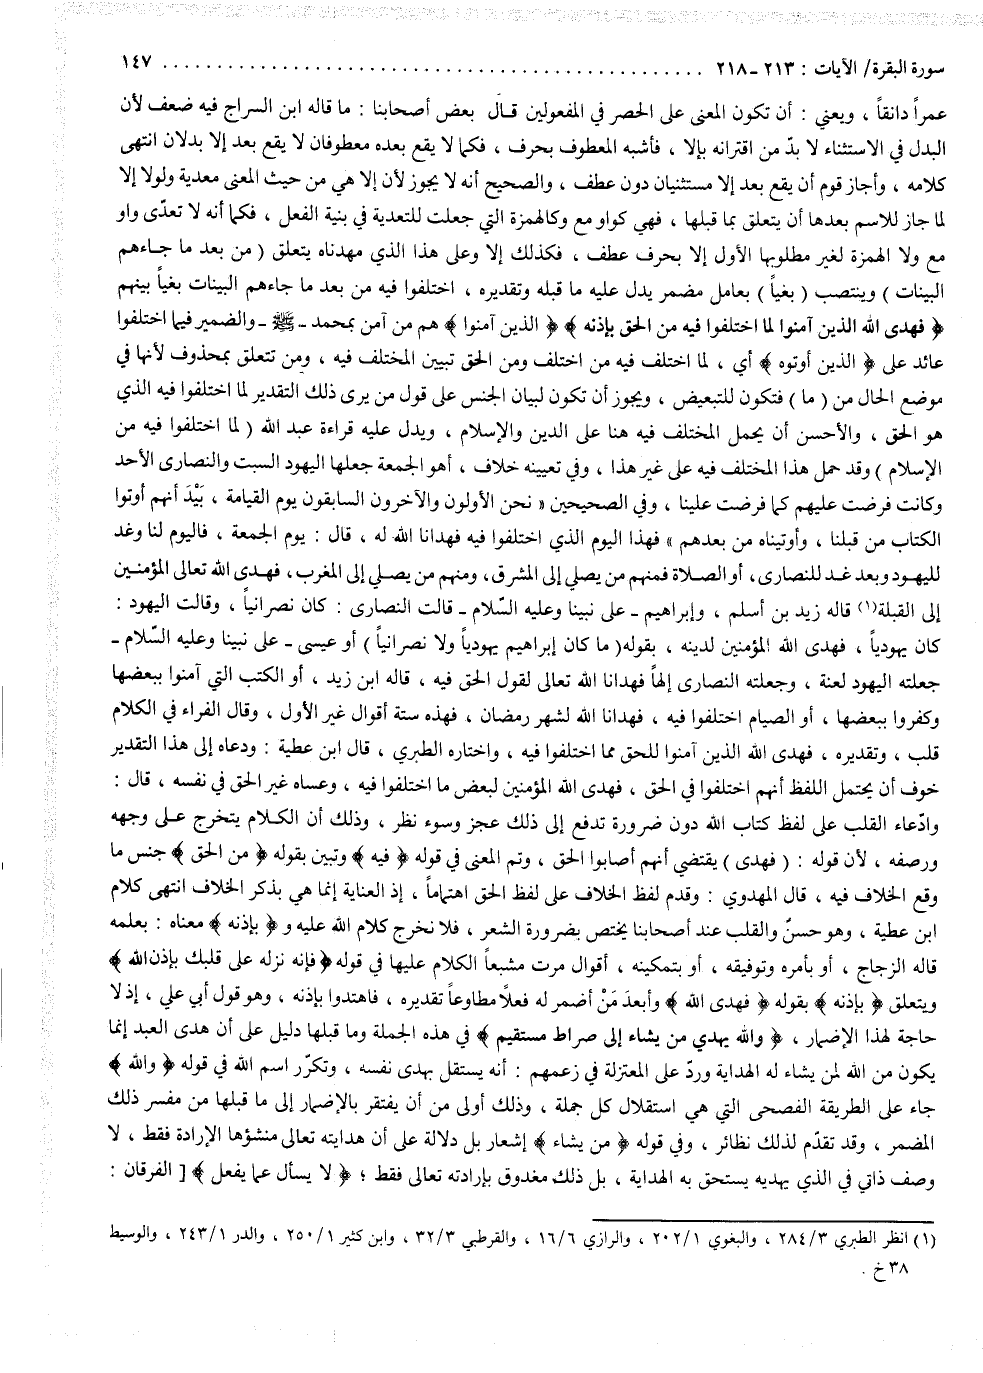 سورة البقرة/ الآيات : ٢١٣ ـ ٢١٨ .................................................. ١٤٧
عمراً دانقاً ، ويعني : أن تكون المعنى على الحصر في المفعولين قال بعض أصحابنا : ما قاله ابن السراج فيه ضعف لأن
البدل في الاستثناء لا بدّ من اقترانه بإلا ، فأشبه المعطوف بحرف ، فكما لا يقع بعده معطوفان لا يقع بعد إلا بدلان انتهى
كلامه ، وأجاز قوم أن يقع بعد إلا مستثنيان دون عطف ، والصحيح أنه لا يجوز لأن إلا هي من حيث المعنى معدية ولولا إلا
لما جاز للاسم بعدها أن يتعلق بما قبلها ، فهي كواو مع وكالهمزة التي جعلت للتعدية في بنية الفعل ، فكما أنه لا تعدّى واو
مع ولا الهمزة لغير مطلوبها الأول إلا بحرف عطف ، فكذلك إلا وعلى هذا الذي مهدناه يتعلق ( من بعد ما جاءهم
البينات ) وينتصب ( بغياً ) بعامل مضمر يدل عليه ما قبله وتقديره ، اختلفوا فيه من بعد ما جاءهم البينات بغياً بينهم
﴿ فهدى الله الذين آمنوا لما اختلفوا فيه من الحق بإذنه ﴾ ﴿ الذين آمنوا ﴾ هم من آمن بمحمد ـ ﷺ ـ والضمير فيما اختلفوا
عائد على ﴿ الذين أوتوه ﴾ أي ، لما اختلف فيه من اختلف ومن الحق تبيين المختلف فيه ، ومن تتعلق بمحذوف لأنها في
موضع الحال من ( ما ) فتكون للتبعيض ، ويجوز أن تكون لبيان الجنس على قول من يرى ذلك التقدير لما اختلفوا فيه الذي
هو الحق ، والأحسن أن يحمل المختلف فيه هنا على الدين والإسلام ، ويدل عليه قراءة عبد الله ( لما اختلفوا فيه من
الإسلام ) وقد حمل هذا المختلف فيه على غير هذا ، وفي تعيينه خلاف ، أهو الجمعة جعلها اليهود السبت والنصارى الأحد
وكانت فرضت عليهم كما فرضت علينا ، وفي الصحيحين « نحن الأولون والآخرون السابقون يوم القيامة ، بَيْدَ أنهم أوتوا
الكتاب من قبلنا ، وأوتيناه من بعدهم » فهذا اليوم الذي اختلفوا فيه فهدانا الله له ، قال : يوم الجمعة ، فاليوم لنا وغد
لليهود وبعد غد للنصارى، أو الصلاة فمنهم من يصلي إلى المشرق، ومنهم من يصلي إلى المغرب، فهدى الله تعالى المؤمنين
إلى القبلة(١) قاله زيد بن أسلم ، وإبراهيم ـ على نبينا وعليه السّلام ـ قالت النصارى : كان نصرانياً ، وقالت اليهود :
كان يهودياً ، فهدى الله المؤمنين لدينه ، بقوله( ما كان إبراهيم يهودياً ولا نصرانياً ) أو عيسى ـ على نبينا وعليه السّلام ـ
جعلته اليهود لعنة ، وجعلته النصارى إلهاً فهدانا الله تعالى لقول الحق فيه ، قاله ابن زيد ، أو الكتب التي آمنوا ببعضها
وكفروا ببعضها ، أو الصيام اختلفوا فيه ، فهدانا الله لشهر رمضان ، فهذه ستة أقوال غير الأول ، وقال الفراء في الكلام
قلب ، وتقديره ، فهدى الله الذين آمنوا للحق مما اختلفوا فيه ، واختاره الطبري ، قال ابن عطية : ودعاه إلى هذا التقدير
خوف أن يحتمل اللفظ أنهم اختلفوا في الحق ، فهدى الله المؤمنين لبعض ما اختلفوا فيه ، وعساه غير الحق في نفسه ، قال :
وادّعاء القلب على لفظ كتاب الله دون ضرورة تدفع إلى ذلك عجز وسوء نظر ، وذلك أن الكلام يتخرج على وجهه
ورصفه ، لأن قوله : ( فهدى ) يقتضي أنهم أصابوا الحق ، وتم المعنى في قوله ﴿ فيه ﴾ وتبين بقوله ﴿ من الحق ﴾ جنس ما
وقع الخلاف فيه ، قال المهدوي : وقدم لفظ الخلاف على لفظ الحق اهتماماً ، إذ العناية إنما هي بذكر الخلاف انتهى كلام
ابن عطية ، وهو حسنٌ والقلب عند أصحابنا يختص بضرورة الشعر ، فلا نخرج كلام الله عليه و ﴿ بإذنه ﴾ معناه : بعلمه
قاله الزجاج ، أو بأمره وتوفيقه ، أو بتمكينه ، أقوال مرت مشبعاً الكلام عليها في قوله ﴿ فإنه نزله على قلبك بإذن الله ﴾
ويتعلق ﴿ بإذنه ﴾ بقوله ﴿ فهدى الله ﴾ وأبعدَ مَنْ أضمر له فعلاً مطاوعاً تقديره ، فاهتدوا بإذنه ، وهو قول أبي علي ، إذ لا
حاجة لهذا الإضمار ، ﴿ والله يهدي من يشاء إلى صراط مستقيم ﴾ في هذه الجملة وما قبلها دليل على أن هدى العبد إنما
يكون من الله لمن يشاء له الهداية وردّ على المعتزلة في زعمهم : أنه يستقل بهدى نفسه ، وتكرّر اسم الله في قوله ﴿ والله ﴾
جاء على الطريقة الفصحى التي هي استقلال كل جملة ، وذلك أولى من أن يفتقر بالإضمار إلى ما قبلها من مفسر ذلك
المضمر ، وقد تقدّم لذلك نظائر ، وفي قوله ﴿ من يشاء ﴾ إشعار بل دلالة على أن هدايته تعالى منشؤها الإرادة فقط ، لا
وصف ذاتي في الذي يهديه يستحق به الهداية ، بل ذلك مغدوق بإرادته تعالى فقط ؛ ﴿ لا يسأل عما يفعل ﴾ [ الفرقان :
(١) انظر الطبري ٢٨٤/٣ ، والبغوي ٢٠٢/١ ، والرازي ١٦/٦ ، والقرطبي ٣٢/٣ ، وابن كثير ٢٥٠/١ ، والدر ٢٤٣/١ ، والوسيط
٣٨ خ .